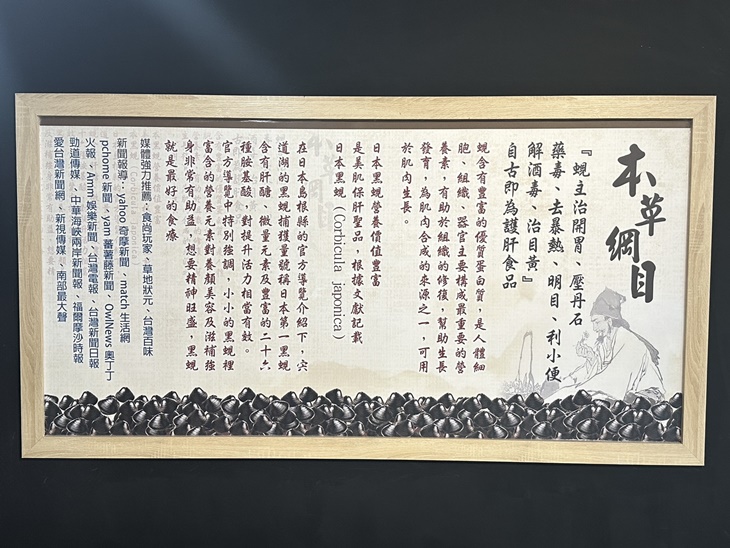 本草綱目
『蜆主治開胃、壓丹石
藥毒、去暴熱、明目、利小便
解酒毒、治目黃』
自古即為護肝食品
蜆含有豐富的優質蛋白質，是人體細
胞、組織、器官主要構成最重要的營
養素，有助於組織的修復，幫助生長
發育，為肌肉合成的來源之一，可用
於肌肉生長。
日本黑蜆營養價值豐富
是美肌保肝聖品，根據文獻記載
日本黑蜆（Corbicula japonica）
在日本島根縣的官方導覽介紹下，宍
道湖的黑蜆捕獲量號稱日本第一黑蜆
含有肝醣、微量元素及豐富的二十六
種胺基酸，對提升活力相當有效。
官方導覽中特別強調，小小的黑蜆裡
富含的營養元素對養顏美容及滋補強
身非常有助益，想要精神旺盛，黑蜆
就是最好的食療
媒體強力推薦：食尚玩家、草地狀元、台灣百味
新聞報導：yahoo奇摩新聞、match生活網
pchome新聞、yam蕃薯藤新聞、OwlNews奧丁丁
火報、Amm娛樂新聞、台灣電報、台灣新聞日報
勁道傳媒、中華海峽兩岸新聞報、福爾摩沙時報
愛台灣新聞網、新視傳媒、南部最大聲